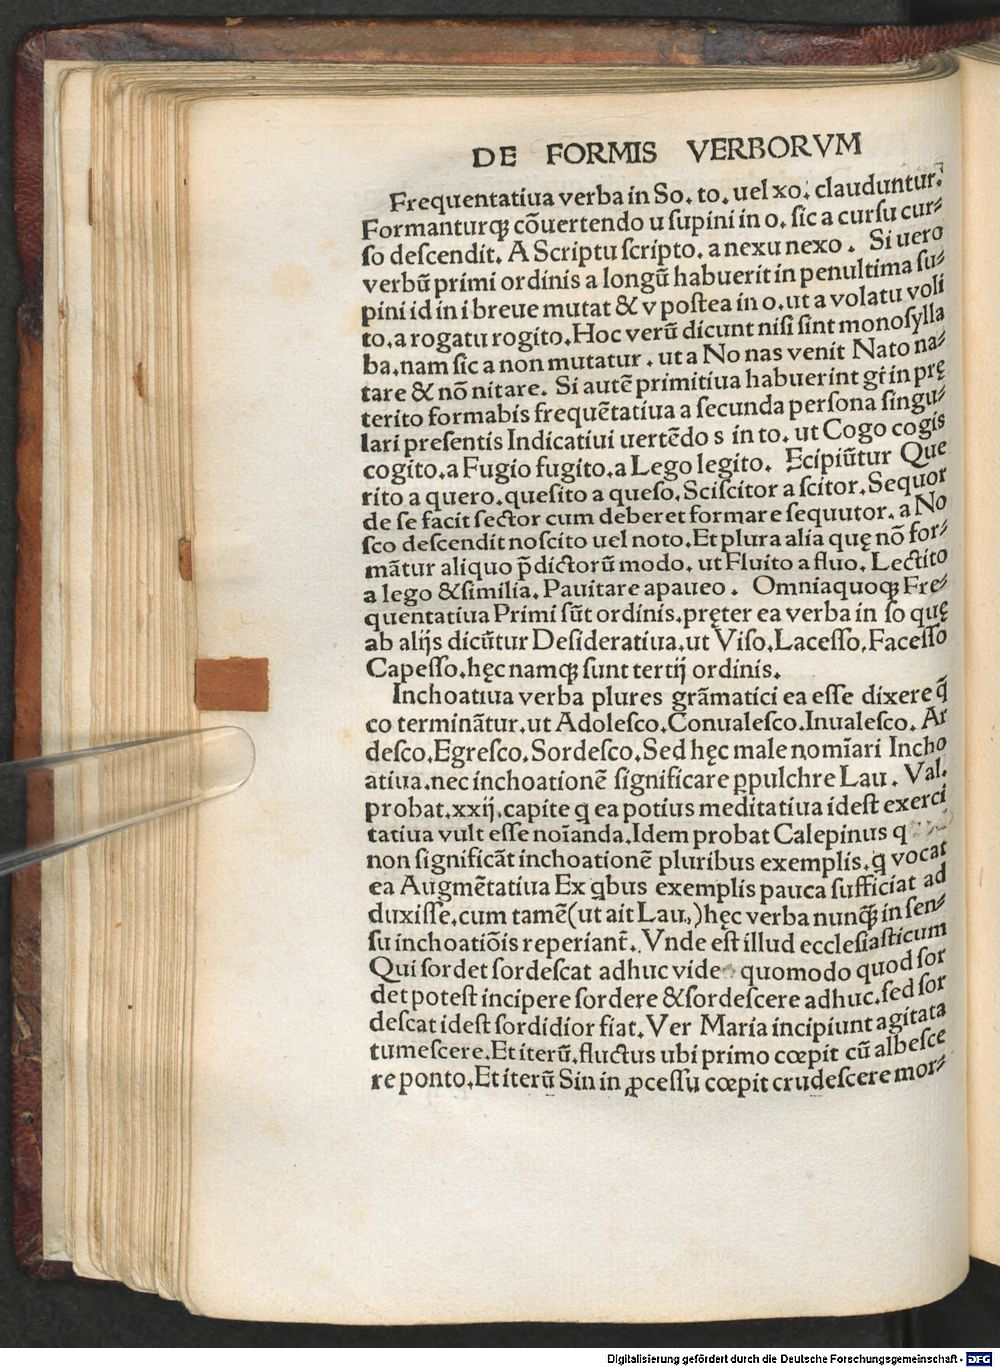 DE FORMIS VERBORVM
Frequentatiua verba in So. to. uel xo. clauduntur.
Formanturqꝫ cõuertendo u supini in o. sic a cursu cur⸗
so descendit. A Scriptu scripto. a nexu nexo. Si uero
verbũ primi ordinis a longũ habuerit in penultima su⸗
pini id in i breue mutat & v postea in o. ut a volatu voli
to. a rogatu rogito. Hoc verũ dicunt nisi sint monosylla
ba. nam sic a non mutatur. ut a No nas venit Nato na⸗
tare & nõ nitare. Si autẽ primitiua habuerint gr̃ in prę
terito formabis frequẽtatiua a secunda persona singu⸗
lari presentis Indicatiui uertẽdo s in to. ut Cogo cogis
cogito. a Fugio fugito. a Lego legito. Ecipiũtur Que
rito a quero. quesito a queso. Sciscitor a scitor. Sequor
de se facit sector cum deberet formare sequutor. a No
sco descendit noscito uel noto. Et plura alia quę nõ for⸗
mãtur aliquo p̃dictorũ modo. ut Fluito a fluo. Lectito
a lego & similia. Pauitare a paueo. Omnia quoqꝫ Fre⸗
quentatiua Primi sũt ordinis. pręter ea verba in so quę
ab alijs dicũtur Desideratiua. ut Viso. Lacesso. Facesso
Capesso. hęc namqꝫ sunt tertij ordinis.
Inchoatiua verba plures grãmatici ea esse dixere q̃
co terminãtur. ut Adolesco. Conualesco. Inualesco. Ar
desco. Egresco. Sordesco. Sed hęc male nomĩari Incho
atiua. nec inchoationẽ significare ꝑpulchre Lau. Val.
probat. xxij. capite ꝗ ea potius meditatiua idest exerci
tatiua vult esse noĩanda. Idem probat Calepinus q
non significãt inchoationẽ pluribus exemplis. ꝗ vocat
ea Augmẽtatiua Ex ꝗbus exemplis pauca sufficiat ad
duxisse. cum tamẽ (ut ait Lau.) hęc verba nunqꝫ̃ in sen⸗
su inchoatiõis reperiant̃. Vnde est illud ecclesiasticum
Qui sordet sordescat adhuc vide quomodo quod sor
det potest incipere sordere & sordescere adhuc. sed sor
descat idest sordidior fiat. Ver Maria incipiunt agitata
tumescere. Et iterũ. fluctus ubi primo cœpit cũ albesce
re ponto. Et iterũ Sin in ꝓcessu cœpit crudescere mor⸗
Digitalisierung gefördert durch die Deutsche Forschungsgemeinschaft - DFG